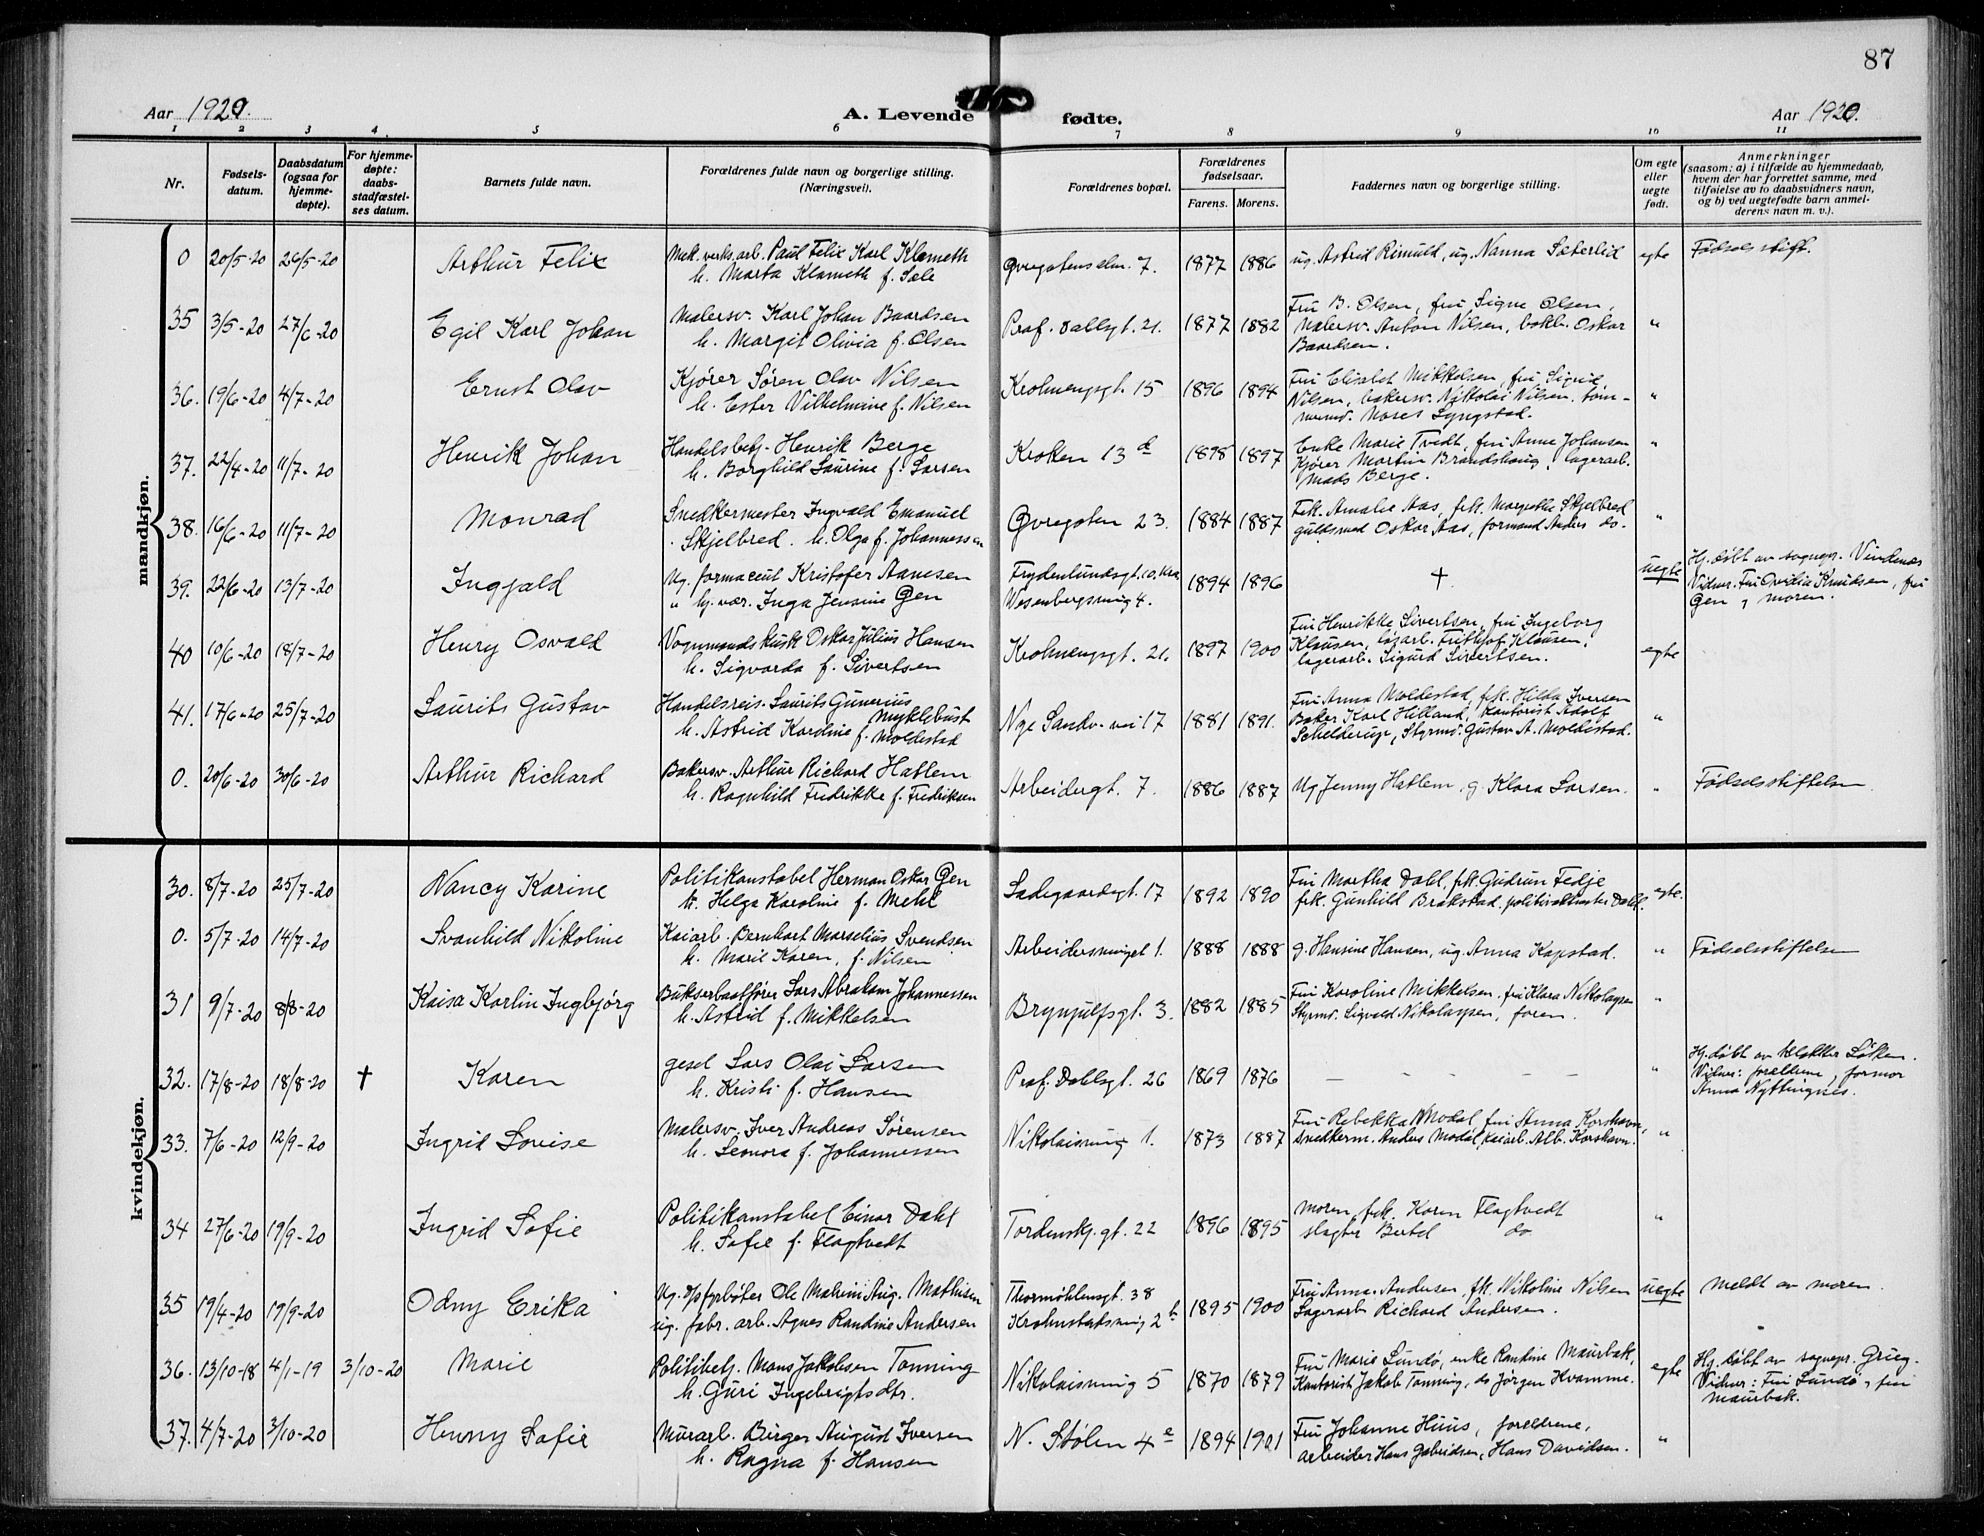 87
Aar 1920.
A. Levende fødte.
Aar 1920.
1 2 3 4. 5 6 7 8 9 10 11
Nr.
Fødsels-
datum.
Daabsdatum
(ogsaa for
hjemme-
døpte).
For hjemme-
døpte:
daabs-
stadfæstel-
ses datum.
Barnets fulde navn.
Forældrenes fulde navn og borgerlige stilling.
(Næringsvei).
Forældrenes bopæl.
Forældrenes
fødselsaar.
Farens. Morens.
Faddernes navn og borgerlige stilling.
Om egte
eller
uegte
født.
Anmerkninger
(saasom: a) i tilfælde av hjemmedaab,
hvem der har forrettet samme, med
tilføielse av to daabsvidners navn,
og b) ved uegtefødte barn anmel-
derens navn m. v.).
mandkjøn.
0 20/5-20 26/5-20 Arthur Felix
Mek. verks.arb. Paul Felix Karl Klameth
h. Marta Klameth f. Sæle
Øvregatens elm. 7. 1877 1886
ug. Astrid Rimuld, ug. Nanna Sæterlid
egte Fødselsstift.
35 3/5-20 27/6-20 Egil Karl Johan
Malersv. Karl Johan Baardsen
h. Margit Olivia f. Olsen
Prof. Dallsgt. 21. 1877 1882
Fru B. Olsen, fru Signe Olsen,
Malersv. Anton Nilsen, bokb. Oskar
Baardsen.
"
36. 19/6-20 4/7-20 Ernst Olav
Kjører Søren Olav Nilsen
h. Ester Vilhelmine f. Nilsen
Krohnengsgt. 15 1896 1894
Fru Elisabet Mikkelsen, fru Sigrid
Nilsen, bakersv. Nikolai Nilsen, tøm-
mermd. Moses Lyngstad.
"
37. 22/4-20 11/7-20 Henrik Johan
Handelsbetj. Henrik Berge
h. Borghild Laurine f. Larsen
Kroken 13 d 1898 1897
Enke Marie Tvedt, fru Anne Johansen
Kjører Martin Brandshaug, lagerarb.
Mads Berge.
"
38. 16/6-20 11/7-20 Monrad
Snedkermester Ingvald Emanuel
Skjelbred. h. Olga f. Johannessen
Øvregaten 23. 1884 1887
Frk. Amalie Aas, frk. Margrethe Skjelbred
guldsmed Oskar Aas, formand Anders do.
"
39. 22/6-20 13/7-20 Ingjald
Ug. farmaceut Kristofer Aanesen
" hj. vær. Inga Jensine Gen
Frydenlundsgt. 10. Kra.
Wesenbergsmug 4. 1894 1896
†
uegte
Hj.døbt av sognepr. Vindenæs
Vidner. Fru Ovidia Knudsen, fru
Gen, moren.
40 10/6-20 18/7-20 Henry Osvald
Vognmandskusk Oskar Julius Hansen
h. Sigvarda f. Sivertsen
Krohnengsgt. 21. 1897 1900
Fru Henrikke Sivertsen, fru Ingeborg
Klausen, løsarb. Frithjof Klausen,
lagerarb. Sigurd Sivertsen.
egte
41. 17/6-20 25/7-20 Laurits Gustav
Handelsreis. Laurits Gunerius
Myklebust
h. Astrid Kardine f. Moldestad
Nye Sandv.vei 17 1881 1891.
Fru Anna Moldestad, frk. Hilda Iversen
Baker Karl Hilland, Kontorist Adolf
Schelderup, Styrmd. Gustav A. Moldestad.
"
0. 20/6-20 30/6-20 Arthur Richard
Bakersv. Arthur Richard Hatlem
h. Ragnhild Fredrikke f. Fredriksen
Arbeidergt. 7. 1886 1887
Ug Jenny Hatlem, g. Klara Larsen.
" Fødselsstiftelsen
kvindekjøn.
30. 8/7-20 25/7-20 Nancy Karine
Politikonstabel Herman Oskar Gen
h. Helga Karoline f. Mehl
Ladegaardsgt. 17 1892 1890
Fru Martha Dahl, frk. Gudrun Fedje
frk. Gunhild Brakstad, Dahl.
egte.
0. 5/7-20 14/7-20 Svanhild Nikoline
Kaiarb. Bernhart Marselius Svendsen
h. Marie Karen, f. Nilsen
Arbeidersmuget 1. 1888 1888
g. Hansine Hansen, ug. Anna Kapstad.
" Fødselsstiftelsen
31 9/7-20 8/8-20 Kaisa Karlin Ingbjørg
Bukserbaatfører Lars Abraham Johannessen
h. Astrid f. Mikkelsen
Brynjulfsgt. 3. 1882 1885
Fru Karoline Mikkelsen, fru Klara Nikolaysen
Styrmd. Sigvald Nikolaysen, faren.
"
32. 17/8-20 18/8-20 † Karen
gesel Lars Olai Larsen
h. Kristi f. Hansen
Prof. Dahlsgt. 26 1869 1876
– – – – –
"
Hj.døbt av Klokker Løken.
Vidner: forældrene, farmor
Anna Nyttingnes.
33. 7/6-20 12/9-20 Ingrid Lovise
Malersv. Iver Andreas Sørensen
h. Leonora f. Johannessen
Nikolaismug 1. 1873 1887
Fru Rebekka Modal, fru Anna Korshavn,
snedkerm. Anders Modal, kaiarb. Alb. Korshavn.
"
34 27/6-20 19/9-20 Ingrid Sofie
Politikonstabel Einar Dahl
h. Sofie f. Flagtvedt
Tordenskj.gt. 22 1896 1895
Moren, frk. Karen Flagtvedt
slagter Bertel do.
"
35 19/4-20 19/9-20 Odny Erika
Ug. Fyrbøter Ole Aug. Mathisen
ug. fabr. arb. Agnes Randine Andersen
Thormøhlensgt. 38
Krohnstadsmug 2 b 1895 1900
Fru Anna Andersen, frk. Nikoline Nilsen
Lagerarb. Richard Andersen.
uegte Meldt av moren.
36. 13/10-18 4/1-19 3/10-20 Marie
Politibetj. Mons Jakobsen Tonning
h. Guri Ingebrigtsdtr.
Nikolaismug 5 1870 1879
Fru Marie Lundø, enke Randine Maurbak,
Kontorist Jakob Tonning, do Jørgen Kvamme.
egte
Hj.døbt av sognepr. Grieg.
Vidner: Fru Lundø, fru
Maurbak.
37. 4/7-20 3/10-20 Henny Sofie
Murarb. Birger August Iversen
h. Ragna f. Hansen
N. Stølen 4 e 1894 1901
Fru Johanne Huus, forældrene,
arbeider Hans Gabrielsen, Hans Davidsen.
"